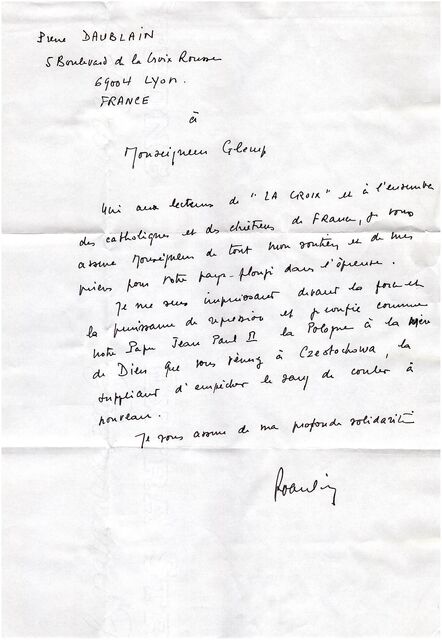 Pierre DAUBLAIN
5 Boulevard de la Croix Rousse
69004 LYON.
FRANCE
à
Monseigneur Glemp
Uni aux lecteurs de "LA CROIX" et à l'ensemble
des catholiques et des chrétiens de France, je vous
assure Monseigneur de tout mon soutien et de mes
prières pour votre pays plongé dans l'épreuve.
Je me sens impuissant devant la force et
la puissance de répression et je confie comme
notre Pape Jean Paul II la Pologne à la Mère
de Dieu que vous vénérez à Czestochowa, la
suppliant d'empêcher le sang de couler à
nouveau.
Je vous assure de ma profonde solidarité